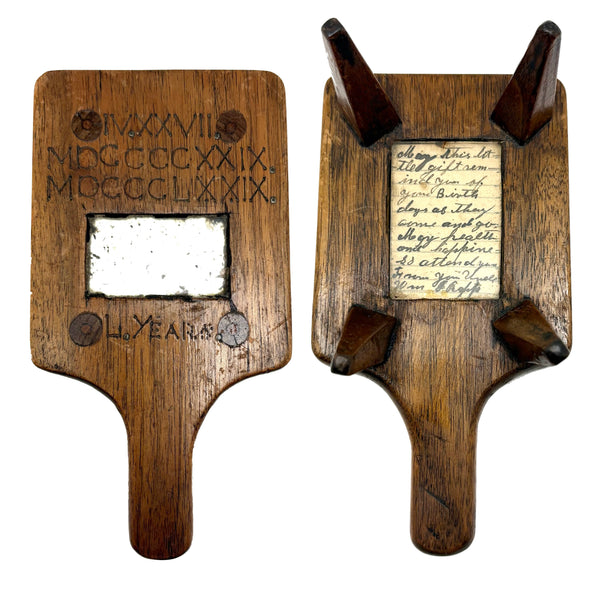 IV.XXVII.
MDCCCCXXIX.
MDCCCLXXIX.
L. YEARS.
May this lit
tle gift rem
ind you of
your Birth
days as they
come and go.
May health
and happine
ss attend you
From your Uncle
Wm